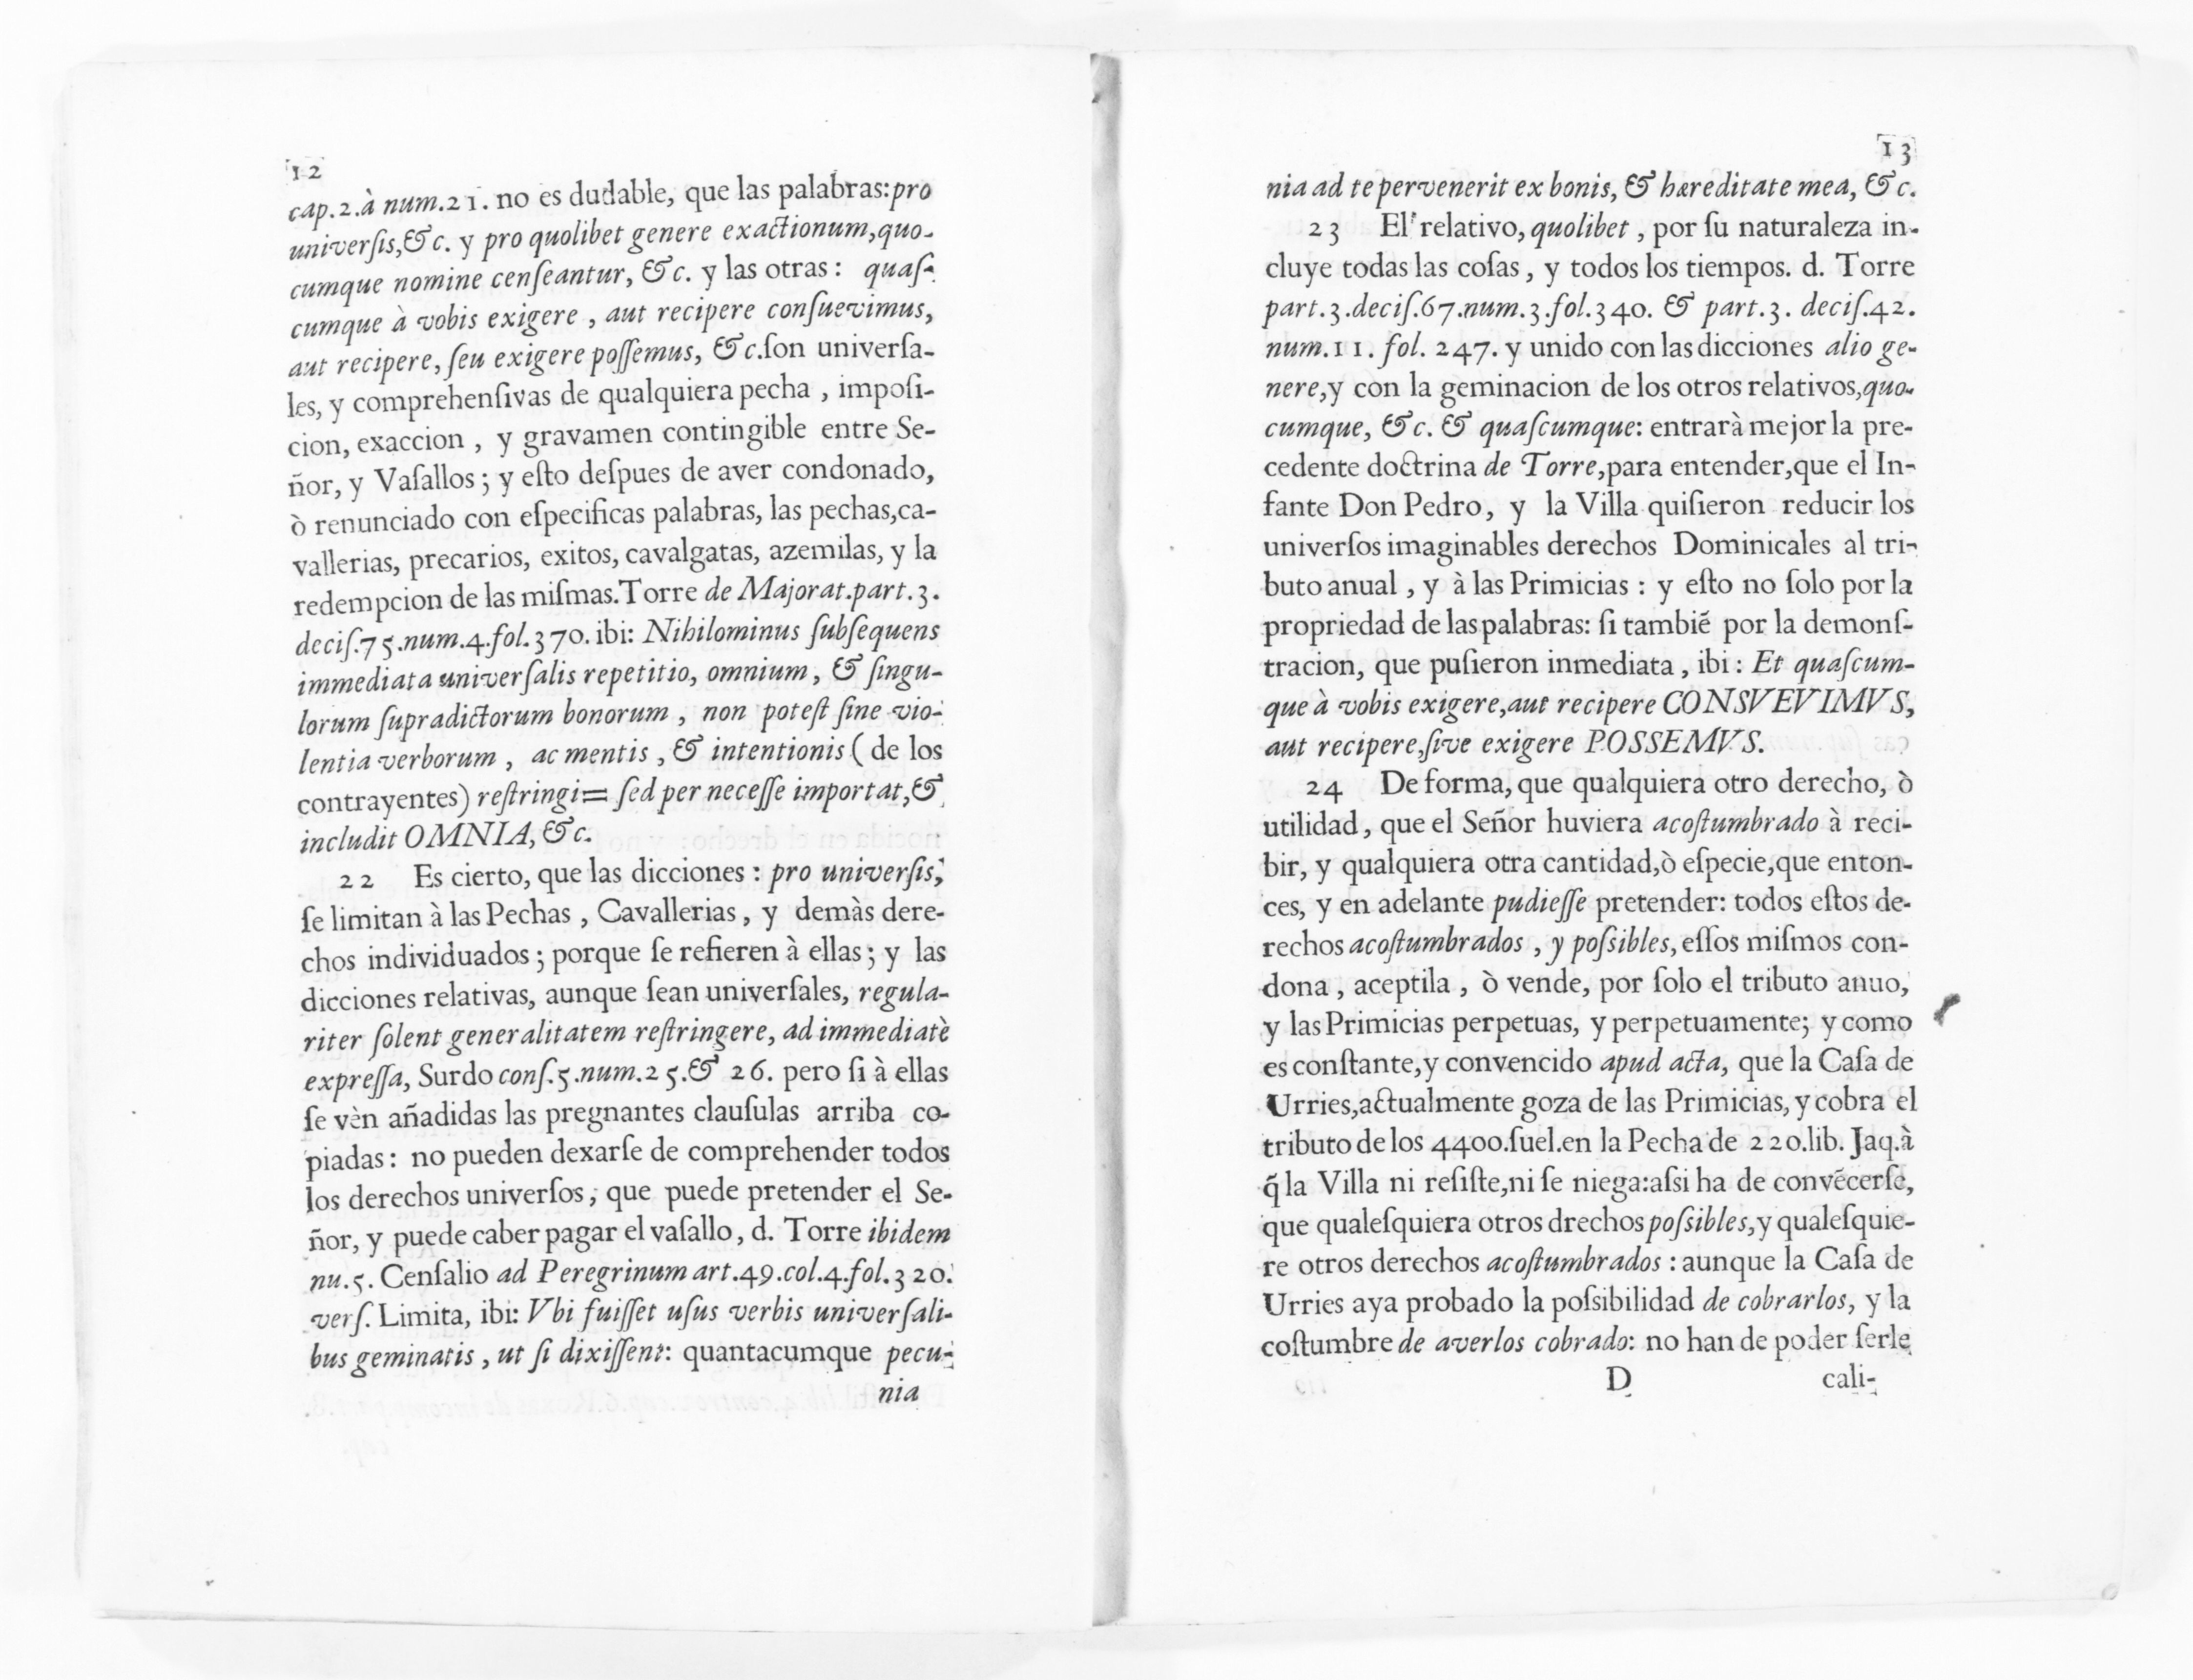 12
cap.2.à num.21. no es dudable, que las palabras:pro
universis,&c. y pro quolibet genere exactionum,quo-
cumque nomine censeantur, &c. y las otras: quas-
cumque à vobis exigere, aut recipere consuevimus,
aut recipere, seu exigere possemus, &c.son universa-
les, y comprehensivas de qualquiera pecha, imposi-
cion, exaccion, y gravamen contingible entre Se-
ñor, y Vasallos; y esto despues de aver condonado,
ò renunciado con especificas palabras, las pechas,ca-
vallerias, precarios, exitos, cavalgatas, azemilas, y la
redempcion de las mismas.Torre de Majorat.part.3.
decis.75.num.4.fol.370.ibi: Nihilominus subsequens
immediata universalis repetitio, omnium, & singu-
lorum supradictorum bonorum, non potest sine vio-
lentia verborum, ac mentis, & intentionis (de los
contrayentes) restringi= sed per necesse importat,&
includit OMNIA,&c.
22 Es cierto, que las dicciones: pro universis,
se limitan à las Pechas, Cavallerias, y demàs dere-
chos individuados; porque se refieren à ellas; y las
dicciones relativas, aunque sean universales, regula-
riter solent generalitatem restringere, ad immediatè
expressa, Surdo cons.5.num.25.& 26. pero si à ellas
se vèn añadidas las pregnantes clausulas arriba co-
piadas: no pueden dexarse de comprehender todos
los derechos universos, que puede pretender el Se-
ñor, y puede caber pagar el vasallo, d. Torre ibidem
nu.5. Censalio ad Peregrinum art.49.col.4.fol.320.
vers. Limita, ibi: Vbi fuisset usus verbis universali-
bus geminatis, ut si dixissent: quantacumque pecu-
nia
13
nia ad te pervenerit ex bonis, & hæreditate mea, &c.
23 El relativo, quolibet, por su naturaleza in-
cluye todas las cosas, y todos los tiempos. d. Torre
part.3.decis.67.num.3.fol.340. & part.3. decis.42.
num.11. fol. 247. y unido con las dicciones alio ge-
nere,y con la geminacion de los otros relativos,quo-
cumque, &c. & quascumque: entrarà mejor la pre-
cedente doctrina de Torre,para entender,que el In-
fante Don Pedro, y la Villa quisieron reducir los
universos imaginables derechos Dominicales al tri-
buto anual, y à las Primicias: y esto no solo por la
propriedad de las palabras: si tambiẽ por la demons-
tracion, que pusieron inmediata, ibi: Et quascum-
que à vobis exigere,aut recipere CONSVEVIMVS,
aut recipere,sive exigere POSSEMVS.
24 De forma, que qualquiera otro derecho, ò
utilidad, que el Señor huviera acostumbrado à reci-
bir, y qualquiera otra cantidad,ò especie,que enton-
ces, y en adelante pudiesse pretender: todos estos de-
rechos acostumbrados, y possibles, essos mismos con-
dona, aceptila, ò vende, por solo el tributo anuo,
y las Primicias perpetuas, y perpetuamente; y como
es constante,y convencido apud acta, que la Casa de
Urries,actualmente goza de las Primicias, y cobra el
tributo de los 4400.suel.en la Pecha de 220.lib. Jaq.à
q̃ la Villa ni resiste,ni se niega:assi ha de convẽcerse,
que qualesquiera otros drechos possibles,y qualesquie-
re otros derechos acostumbrados: aunque la Casa de
Urries aya probado la possibilidad de cobrarlos, y la
costumbre de averlos cobrado: no han de poder serle
D cali-